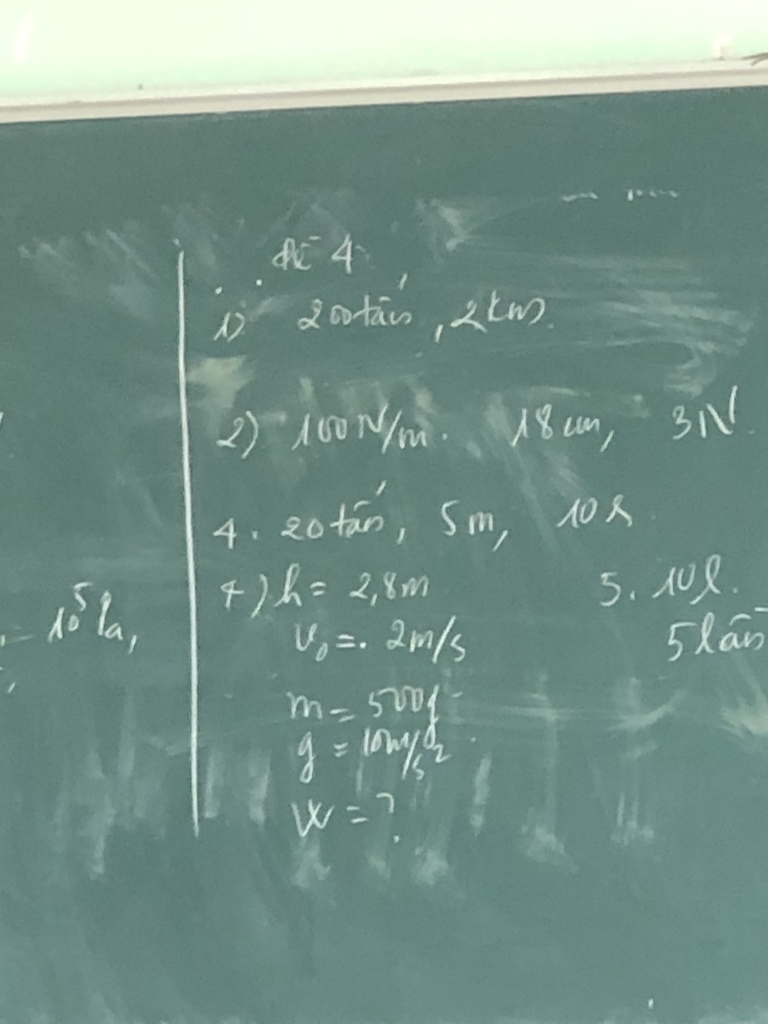 Đề 4
1) 200 tấn, 2km.
2) 100N/m. 18cm, 3N.
4. 20 tấn, 5m, 10s
4) h = 2,8m
5. 10l.
v₀ = 2m/s
5 lần
m = 500g
g = 10m/s²
W = ?
10⁵ Pa,